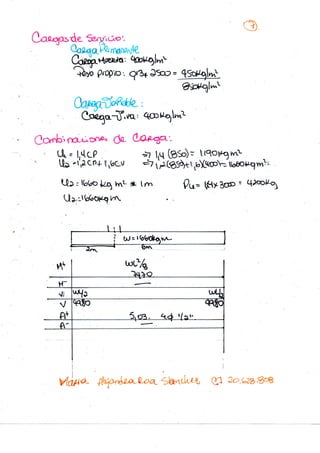 7
Cargas de Servicio:
Carga Permanente
Carga Muerta: 400kg/m²
Peso Propio: 0,3 2500 = 450kg/m²
850kg/m²
Carga Variable:
Carga Viva: 400 kg/m²
Combinaciones de Carga:
U1 = 1,4 CP => 1,4 (850) = 1190 kg m²
U2 = 1,2 CP + 1,6 CV => 1,2 (850) + 1,6 (400) = 1660 kg m²
U2 = 1660 kg m² * 1m
Pu = 1,4 x 3000 = 4200kg
U2 = 1660kg m
W = 1660kg m
2m 6m
M+ WL²/8
7470
M-
Vi WL/2 WL/2
V 4980 4980
A+ 5,03. 4 φ 1/2".
A-
Maria Alejandra Roa Sanchez CI 20.628.808